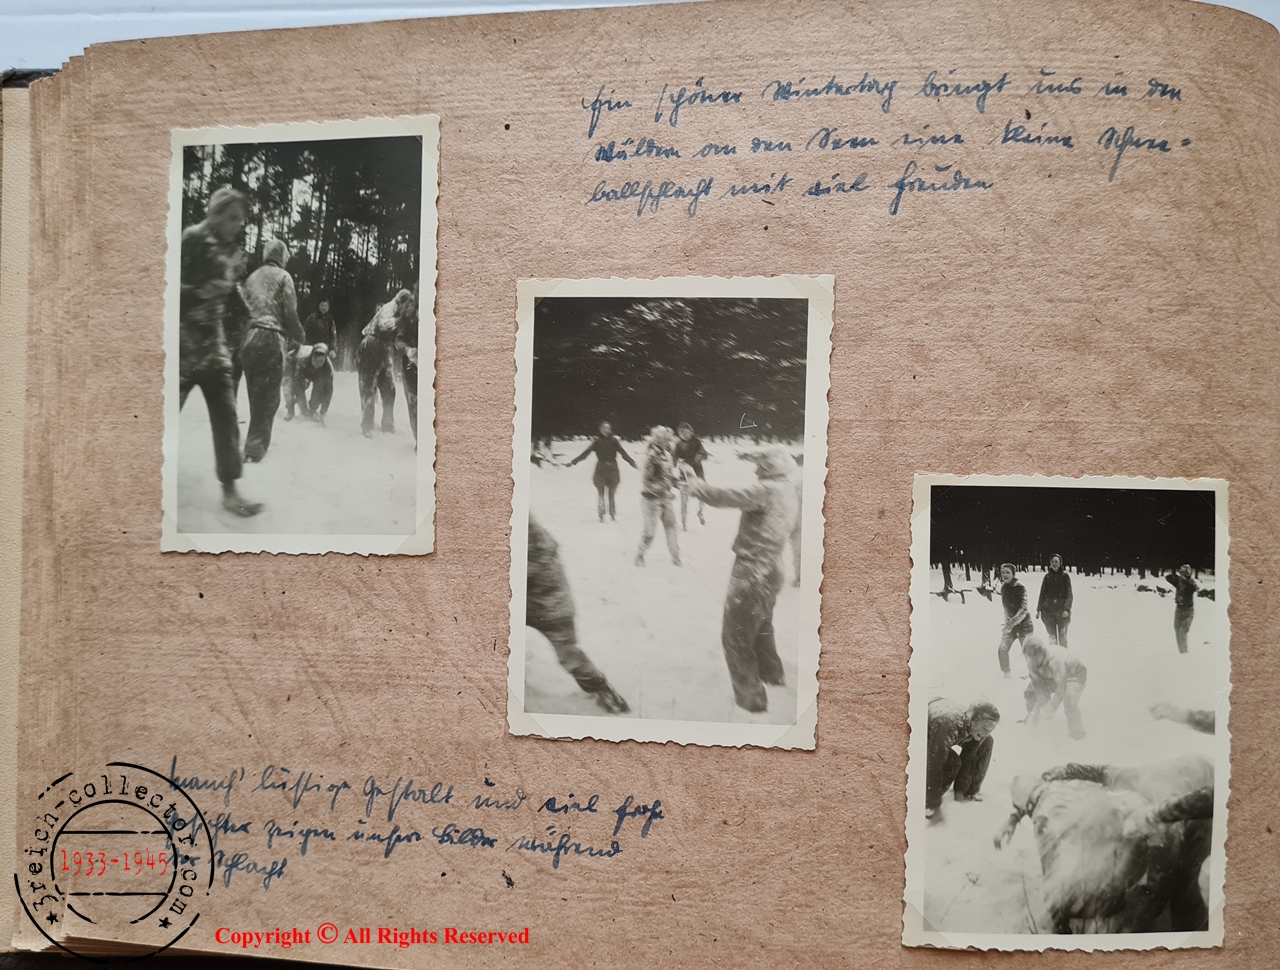 Ein schöner Wintertag bringt uns in den
Wäldern an den Seen eine kleine Schnee-
ballschlacht mit viel Freuden
Manch' lustige Gestalt und viel frohe
Gesichter zeigen unsere Bilder während
der Schlacht
3reich-collector.com
1933-1945
Copyright © All Rights Reserved